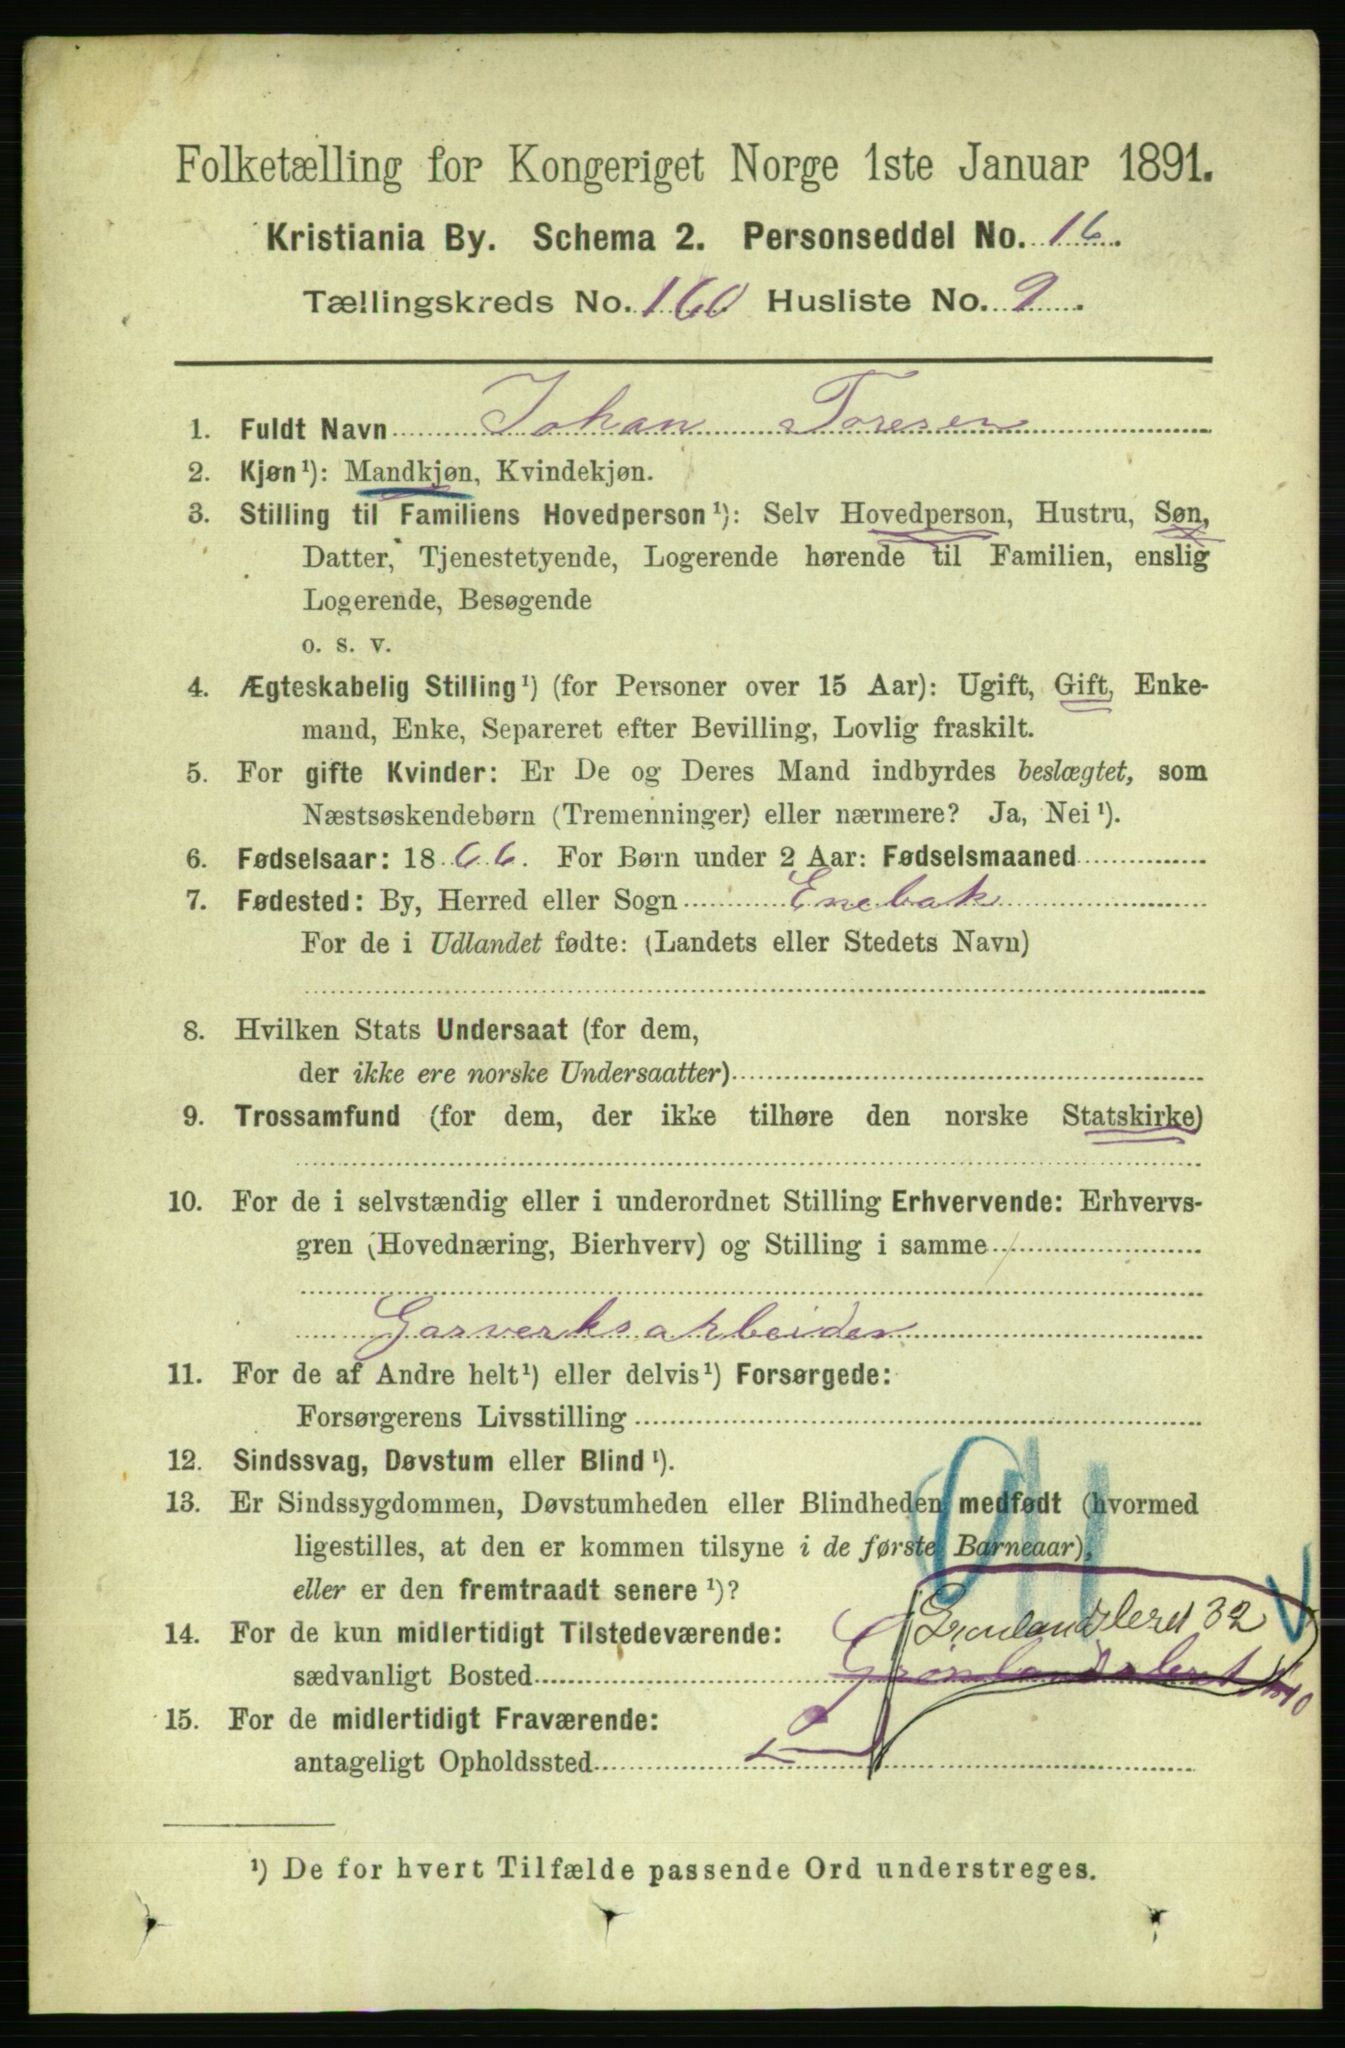 Folketælling for Kongeriget Norge 1ste Januar 1891.
Kristiania By. Schema 2. Personseddel No. 16.
Tællingskreds No. 160 Husliste No. 9.
1. Fuldt Navn Johan Toresen
2. Kjøn¹): Mandkjøn, Kvindekjøn.
3. Stilling til Familiens Hovedperson¹): Selv Hovedperson, Hustru, Søn,
Datter, Tjenestetyende, Logerende hørende til Familien, enslig
Logerende, Besøgende
o. s. v.
4. Ægteskabelig Stilling¹) (for Personer over 15 Aar): Ugift, Gift, Enke-
mand, Enke, Separeret efter Bevilling, Lovlig fraskilt.
5. For gifte Kvinder: Er De og Deres Mand indbyrdes beslægtet, som
Næstsøskendebørn (Tremenninger) eller nærmere? Ja, Nei¹).
6. Fødselsaar: 1866. For Børn under 2 Aar: Fødselsmaaned
7. Fødested: By, Herred eller Sogn Enebak
For de i Udlandet fødte: (Landets eller Stedets Navn)
8. Hvilken Stats Undersaat (for dem,
der ikke ere norske Undersaatter)
9. Trossamfund (for dem, der ikke tilhøre den norske Statskirke)
10. For de i selvstændig eller i underordnet Stilling Erhvervende: Erhvervs-
gren (Hovednæring, Bierhverv) og Stilling i samme
Garverksarbeider
11. For de af Andre helt¹) eller delvis¹) Forsørgede:
Forsørgerens Livsstilling
12. Sindssvag, Døvstum eller Blind¹).
13. Er Sindssygdommen, Døvstumheden eller Blindheden medfødt (hvormed
ligestilles, at den er kommen tilsyne i de første Barneaar),
eller er den fremtraadt senere¹)?
Grønlandsleret 32
14. For de kun midlertidigt Tilstedeværende:
sædvanligt Bosted Grønlandsleret
15. For de midlertidigt Fraværende:
antageligt Opholdssted
¹) De for hvert Tilfælde passende Ord understreges.